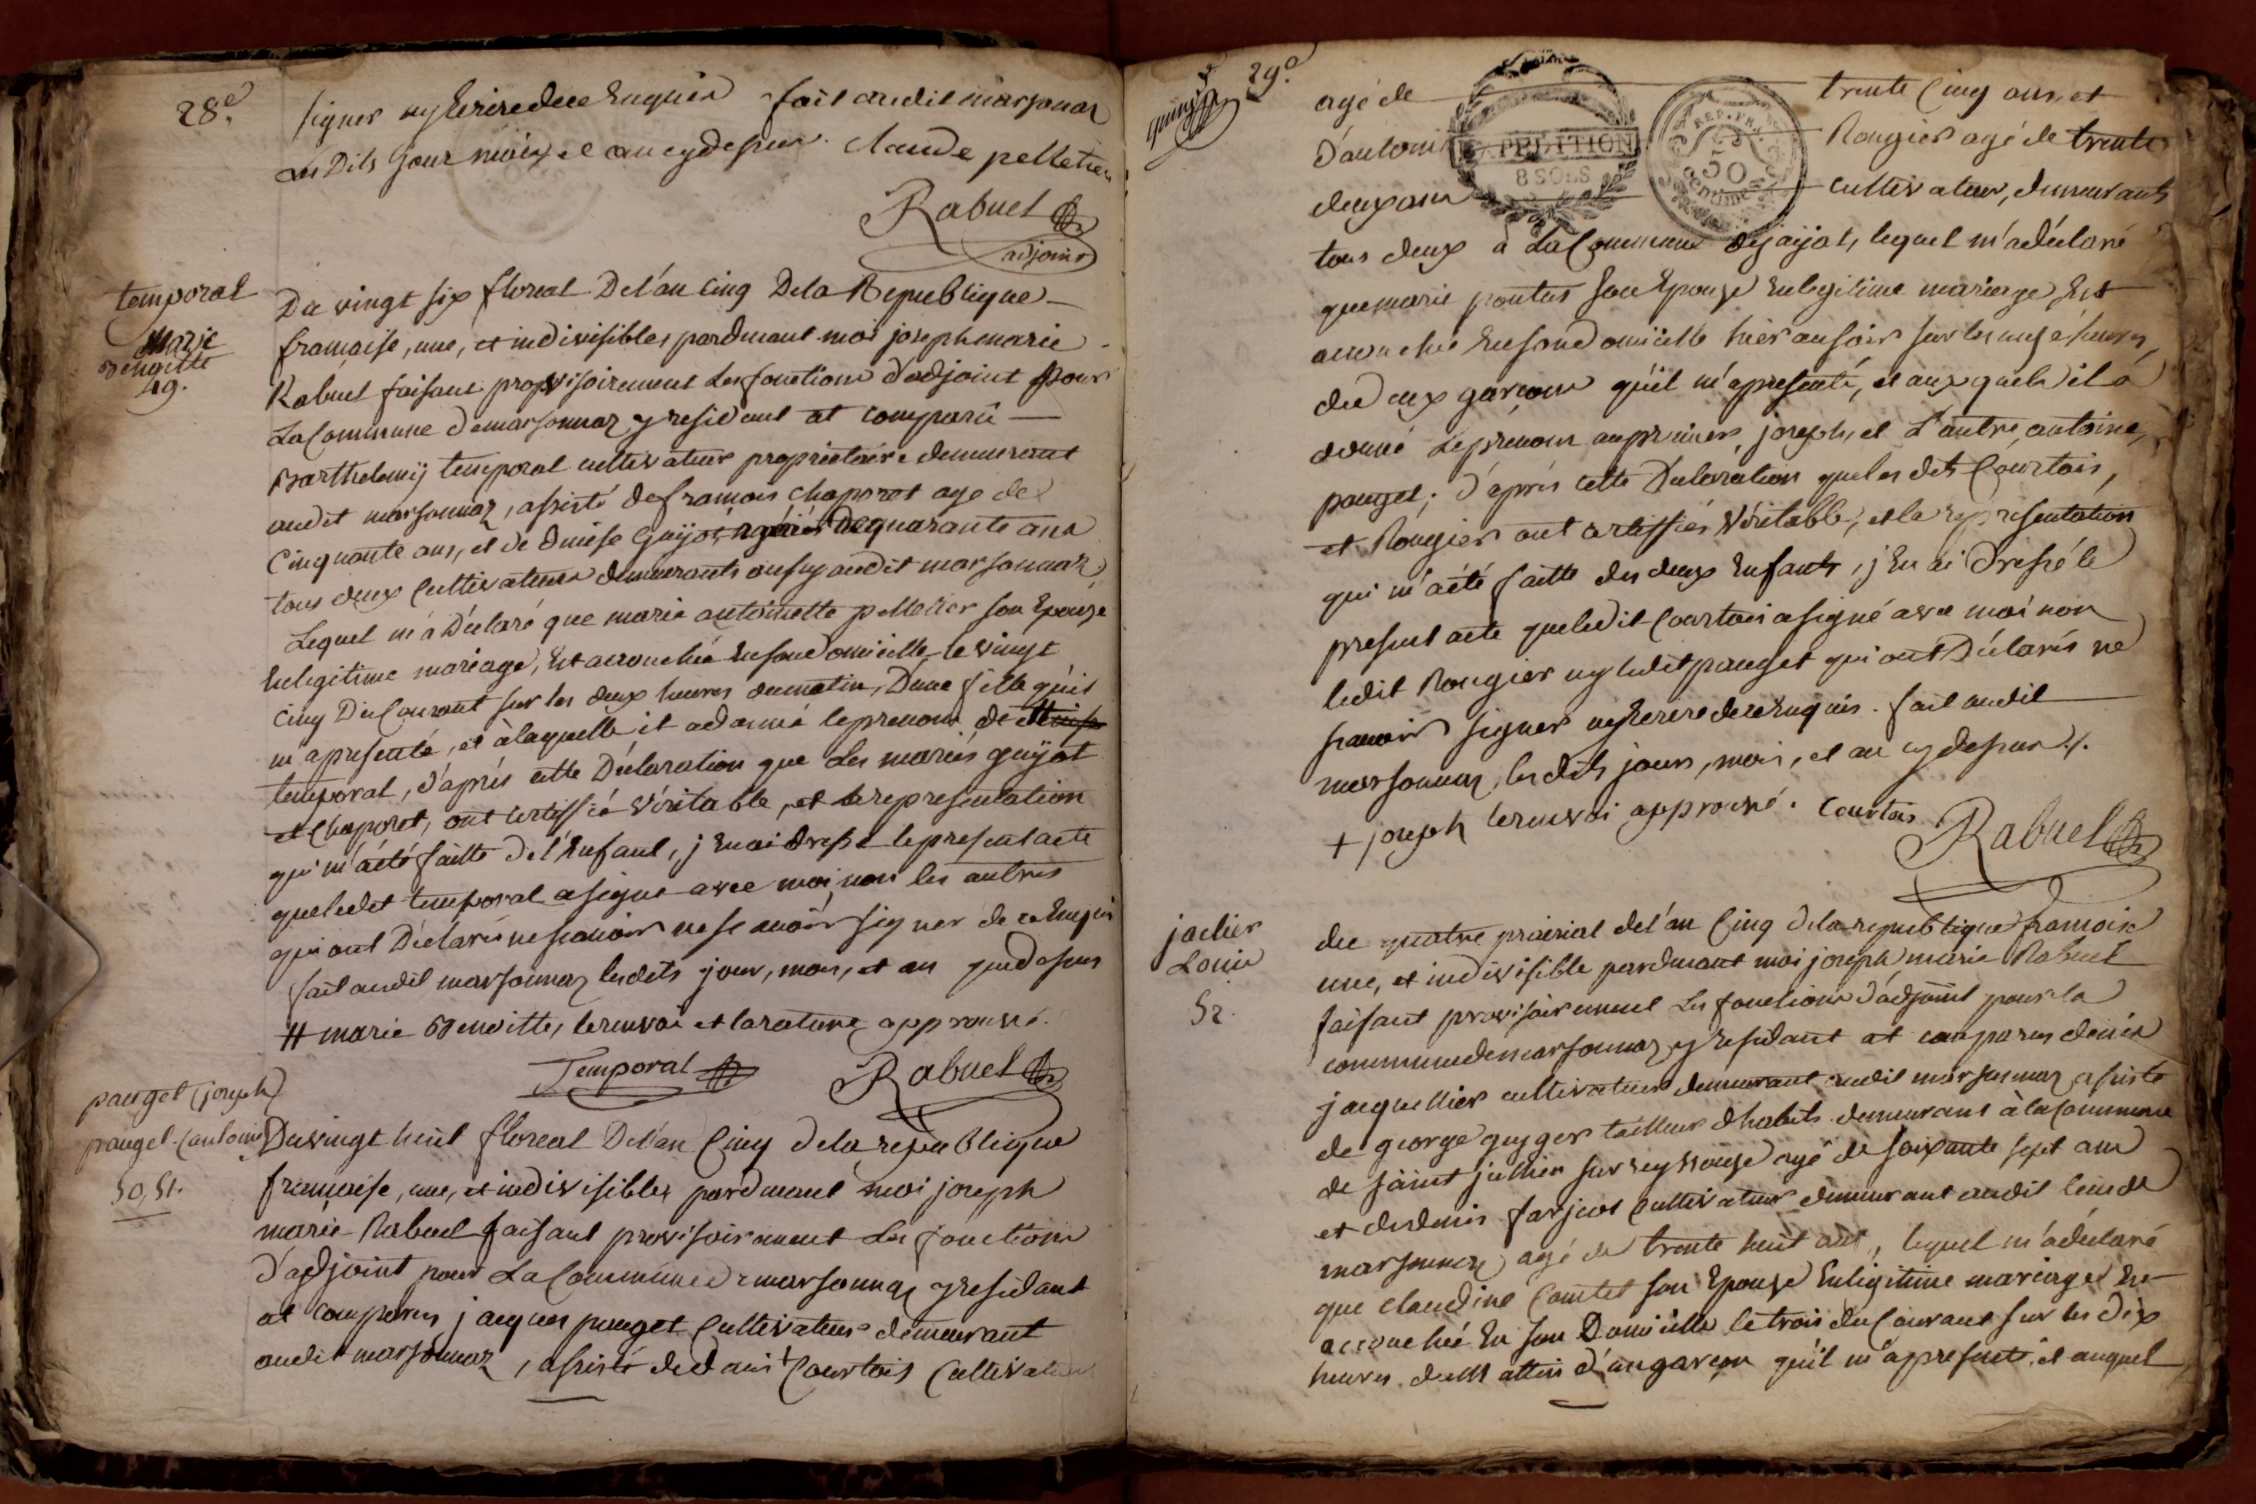 28.e
signer ny Ecrire de ce Enquis fait audit marsonnaz
Les Dits jour mois et an cy dessus. Claude pelletier
Rabuel
adjoint
temporal
Marie
Benoitte
49.
Du vingt six floreal De l'an Cinq De la Republique
francaise, une, et indivisibles pardevant moi joseph marie
Rabuel faisant provisoirement Les fonctions d'adjoint Pour
La Commune de marsonnaz y residant at comparû
Barthelemij temporal cultivateur proprietaire demeurant
audit marsonnaz, assisté de francois chaporot age de
Cinquante ans, et de Guijot de quarante ans
tous deux Cultivateurs demeurants aussy audit marsonnaz,
Lequel m'a Déclaré que marie antoinette pelletier son Epouze
En legitime mariage, Est accouchée En son domicille le vingt
Cinq Du Courant sur les deux heures du matin, D'une fille qu'il
m'a presenté, et à laquelle il a donné le prenom de #
temporal, d'après cette Déclaration que Les mariés guijot
et Chaporot, ont certiffié véritable, et la representation
qui m'a été faitte de l'Enfant, j'En ai dressé le present acte
que ledit temporal a signé avec moi, non les autres
qui ont Déclaré ne scavoir signer de ce Enquis
fait audit marsonnaz les dits jour, mois, et an que dessus
# marie Benoitte, le renvoi et la rature approuvé.
Temporal Rabuel
pauget (joseph)
pauget (antoine)
50, 51.
Du vingt huit floreal De l'an Cinq de la republique
française, une, et indivisibles pardevant moi joseph
marie Rabuel faisant provisoirement Les fonctions
d'adjoint pour La Commune de marsonnaz y residant
at comparus jacques pauget Cultivateur demeurant
audit marsonnaz, assisté de + Courtois Cultivateur
29.e
agé de trente Cinq ans, et
d'antoine Rougier agé de trente
deux ans cultivateur, demeurants
EXPEDITION
8 SOLS
REP. FRA.
50
centimes
tous deux à La Commune de jaijat, lequel m'a déclaré
que marie pontus son Epouze En legitime mariage Est
accouchée En son domicille hier au soir sur les onze heures,
de deux garçons qu'il m'a presenté, et aux quels il a
donné Le prenom au premier, joseph, et L'autre, antoine,
pauget; d'après cette Déclaration que les dits Courtois,
et Rougier ont certiffiés véritable, et la representation
qui m'a été faitte des deux Enfants, j'En ai Dressé le
present acte que ledit Courtois a signé avec moi non
ledit Rougier ny ledit pauget qui ont Déclarés ne
scavoir signer ny Ecrire de ce Enquis. fait audit
marsonnaz, les dits jours, mois, et an cy dessus ./.
+ joseph le renvoi approuvé. Courtois
Rabuel
jaclier
Louis
52.
du quatre prairial de l'an Cinq de la republique francoise
une, et indivisible pardevant moi joseph marie Rabuel
faisant provisoirement Les fonctions d'adjoint pour la
commune de marsonnaz y residant at comparus denis
jacquellier cultivateur demeurant audit marsonnaz assisté
de george guyger tailleur d'habits demeurant à la Commune
de saint jullien sur reyssouze agé de soixante sept ans
et de denis farjeot Cultivateur demeurant audit lieu de
marsonnaz agé de trente huit ans, lequel m'a déclaré
que claudine Comtet son Epouze En legitime mariage Est
accouchée En son Domicille le trois du Courant sur les dix
heures du Matin d'un garçon qu'il m'a presenté, et auquel